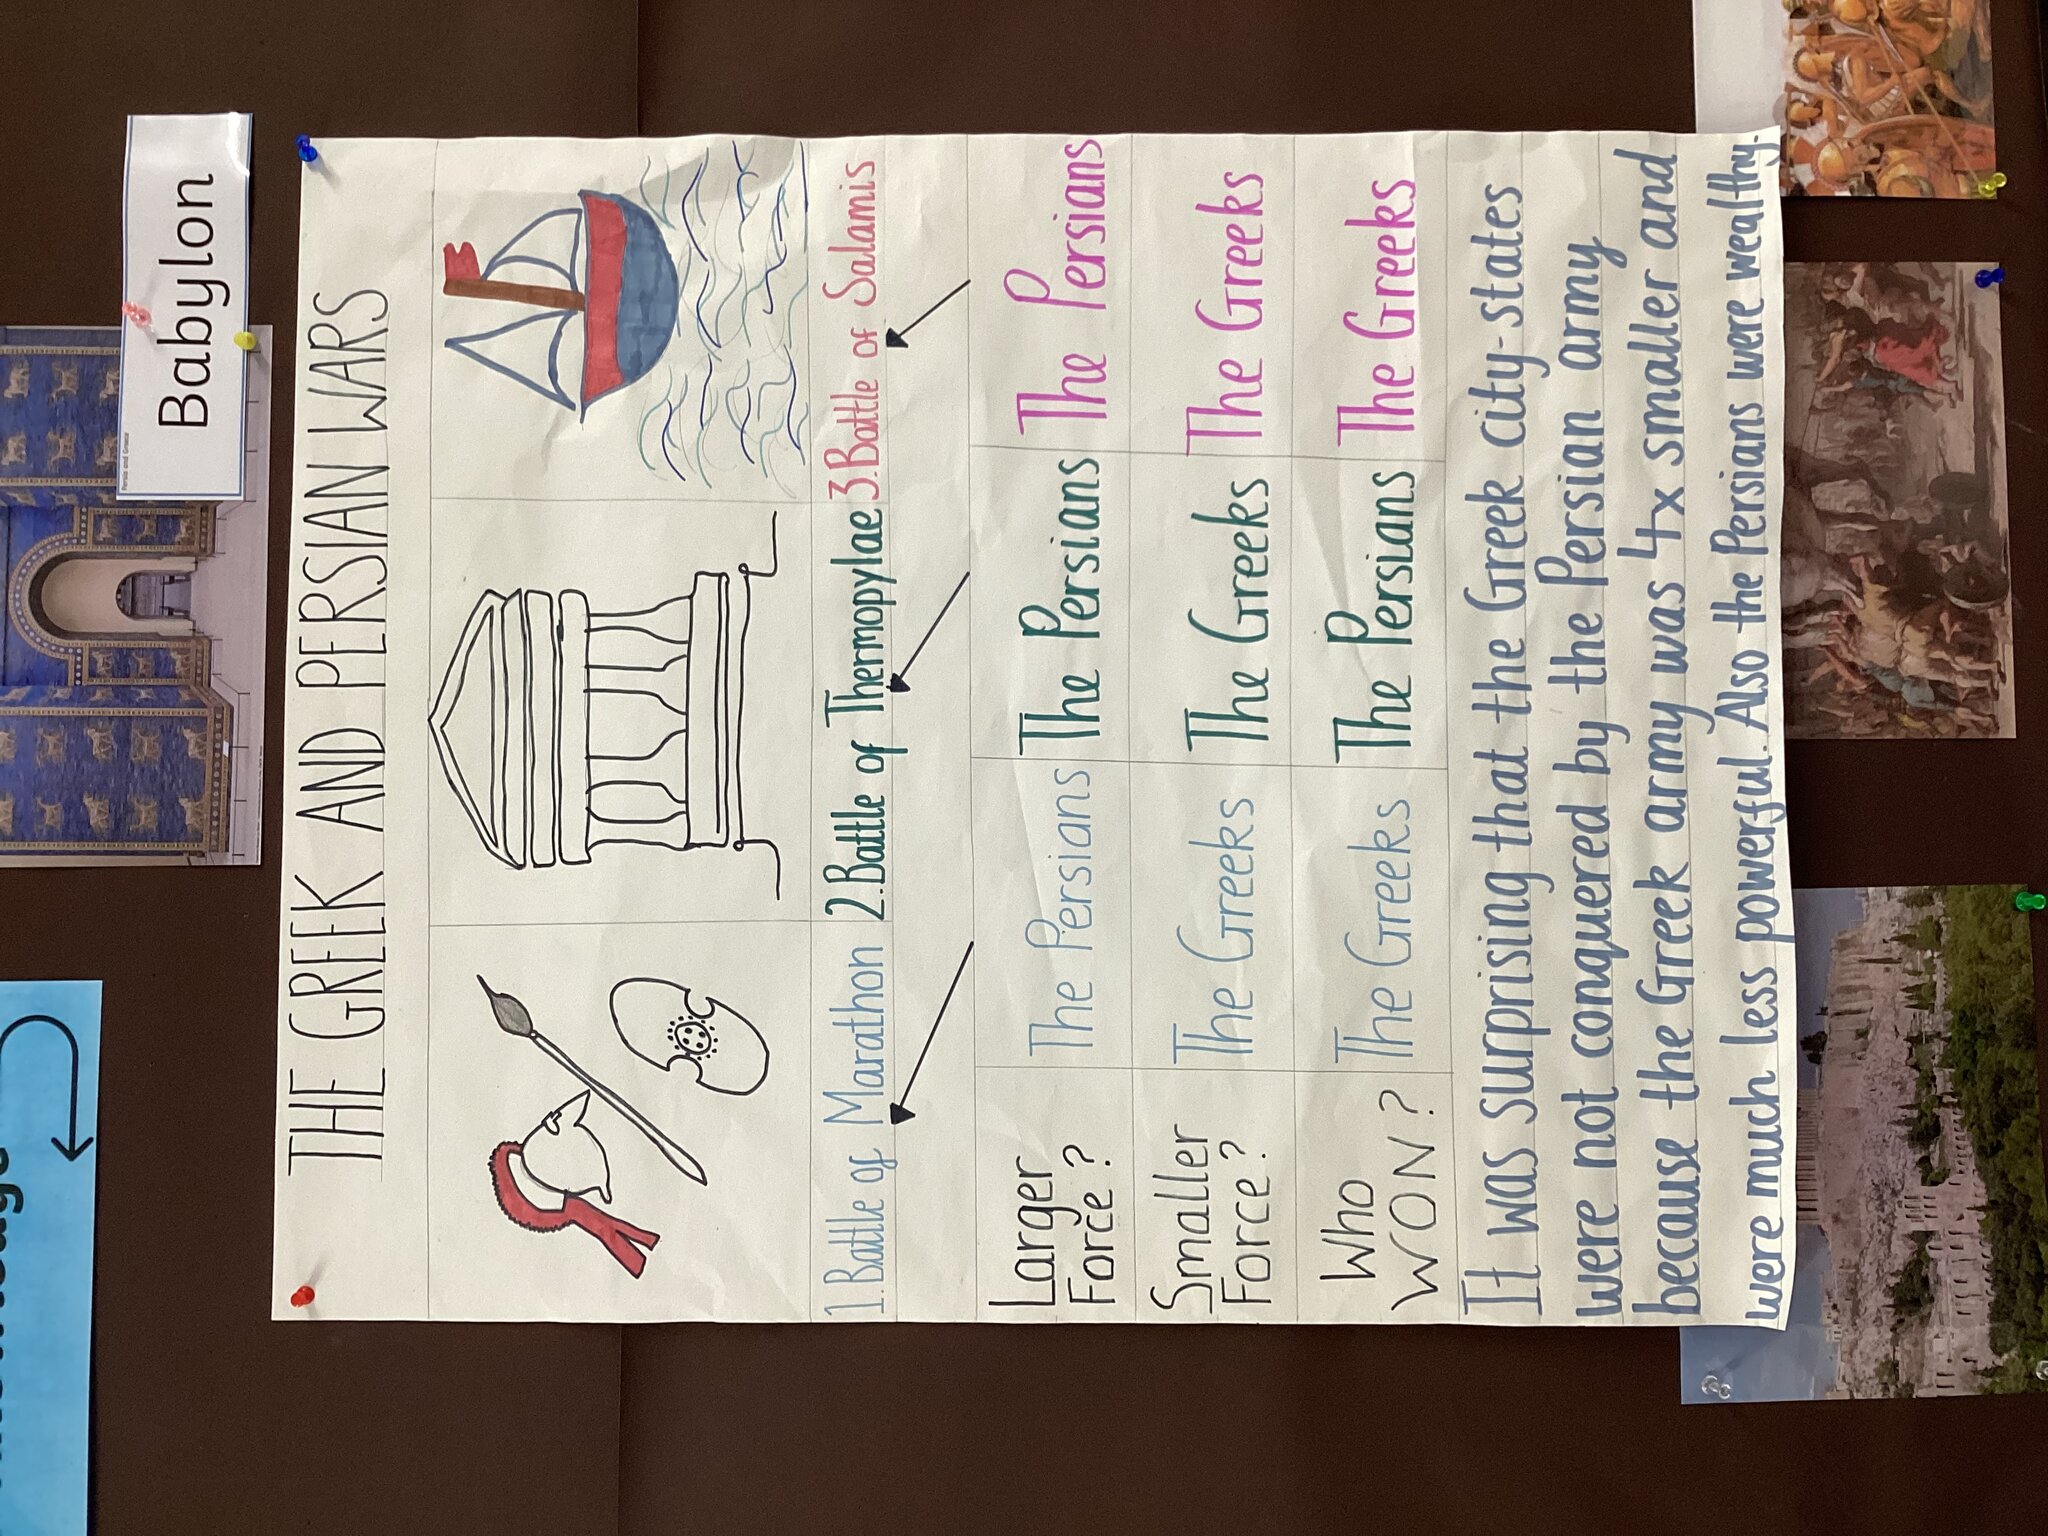 Knowledge
Persia and Greece
Babylon
THE GREEK AND PERSIAN WARS
1. Battle of Marathon
2. Battle of Thermopylae
3. Battle of Salamis
Larger
Force?
The Persians
The Persians
The Persians
Smaller
Force?
The Greeks
The Greeks
The Greeks
Who
WON?
The Greeks
The Persians
The Greeks
It was surprising that the Greek city-states
were not conquered by the Persian army
because the Greek army was 4x smaller and
were much less powerful. Also the Persians were wealthy.